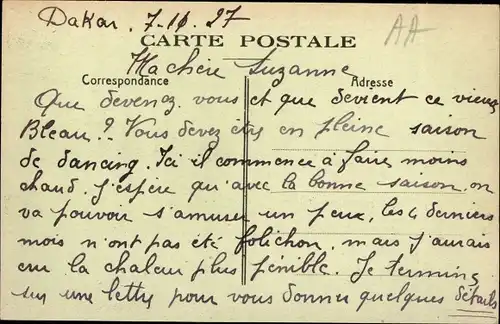 Dakar. 7-10.27
AA
CARTE POSTALE
Ma chère Suzanne
Correspondance
Adresse
Que devenez vous et que devient ce vieux
Bleau ? Vous devez être en pleine saison
de dancing. Ici il commence à faire moins
chaud. J'espère qu'avec la bonne saison, on
va pouvoir s'amuser un peux, les 4 derniers
mois n'ont pas été folichon, mais j'aurais
cru la chaleur plus pénible. Je termine
sur une lettre pour vous donner quelques détails